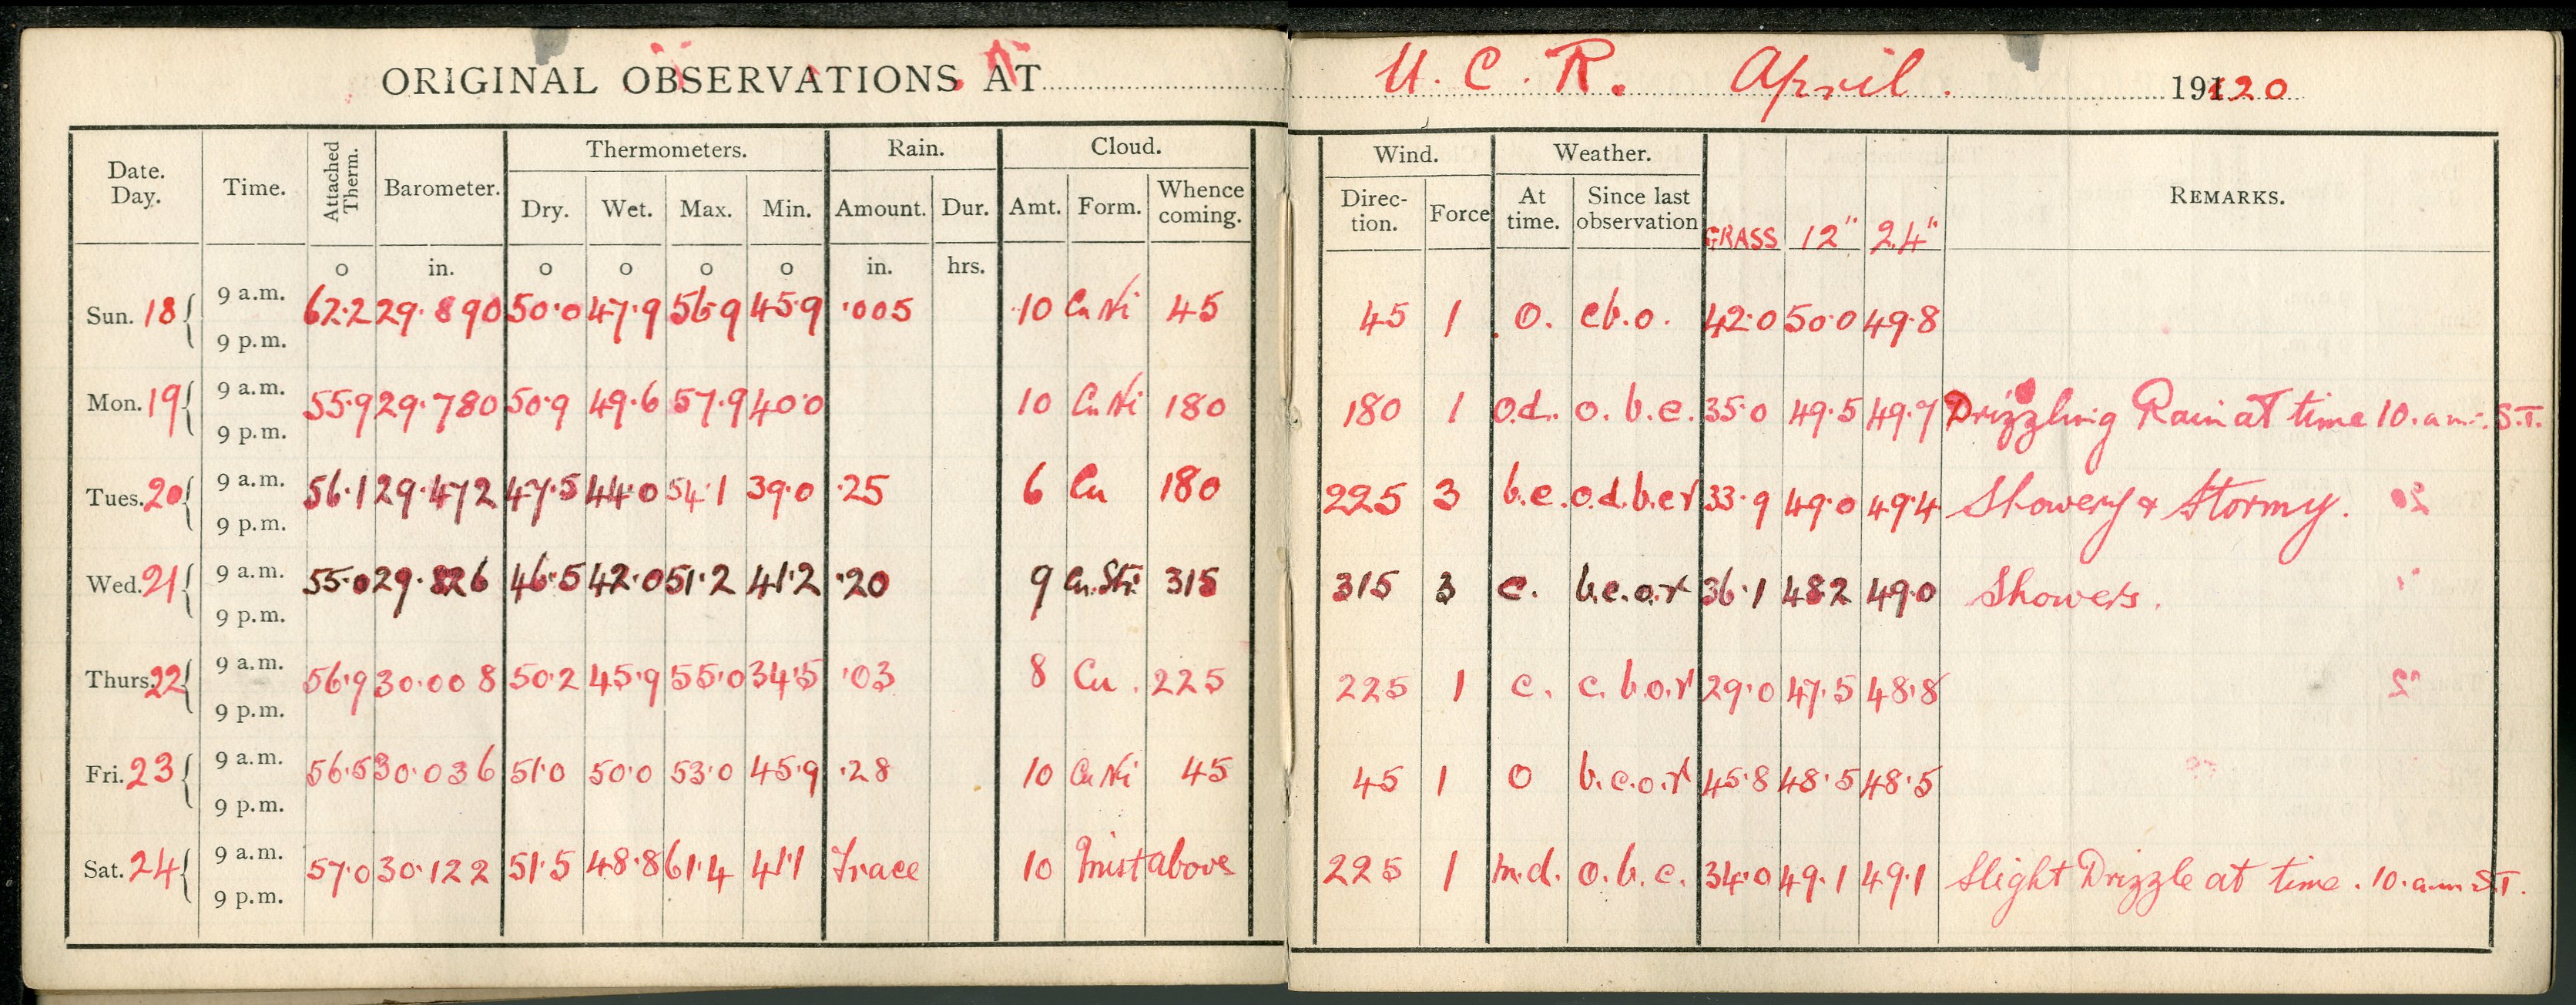 ORIGINAL OBSERVATIONS AT U. C. R. April. 1920
Date. Day. Time. Attached Therm. Barometer. Thermometers. Rain. Cloud. Wind. Weather. REMARKS.
Dry. Wet. Max. Min. Amount. Dur. Amt. Form. Whence coming. Direc- tion. Force At time. Since last observation GRASS 12" 24"
o in. o o o o in. hrs.
Sun. 18 { 9 a.m. 62.2 29.890 50.0 47.9 56.9 45.9 .005 10 Cu Ni 45 45 1 o. cb.o. 42.0 50.0 49.8
9 p.m.
Mon. 19 { 9 a.m. 55.9 29.780 50.9 49.6 57.9 40.0 10 Cu Ni 180 180 1 o.d. o. b. c. 35.0 49.5 49.7 Drizzling Rain at time 10.a.m. S.T.
9 p.m.
Tues. 20 { 9 a.m. 56.1 29.472 47.5 44.0 54.1 39.0 .25 6 Cu 180 225 3 b.c. o.d.b.c r 33.9 49.0 49.4 Showery & Stormy.
9 p.m.
Wed. 21 { 9 a.m. 55.0 29.826 46.5 42.0 51.2 41.2 .20 9 Cu.Str. 315 315 3 c. b.c.o.r 36.1 48.2 49.0 Showers.
9 p.m.
Thurs. 22 { 9 a.m. 56.9 30.008 50.2 45.9 55.0 34.5 .03 8 Cu. 225 225 1 c. c. b.o.r 29.0 47.5 48.8
9 p.m.
Fri. 23 { 9 a.m. 56.5 30.036 51.0 50.0 53.0 45.9 .28 10 Cu Ni 45 45 1 o b.c.o.r 45.8 48.5 48.5
9 p.m.
Sat. 24 { 9 a.m. 57.0 30.122 51.5 48.8 61.4 41.1 Trace 10 Mist above 225 1 m.d. o.b.c. 34.0 49.1 49.1 Slight Drizzle at time. 10.a.m S.T.
9 p.m.